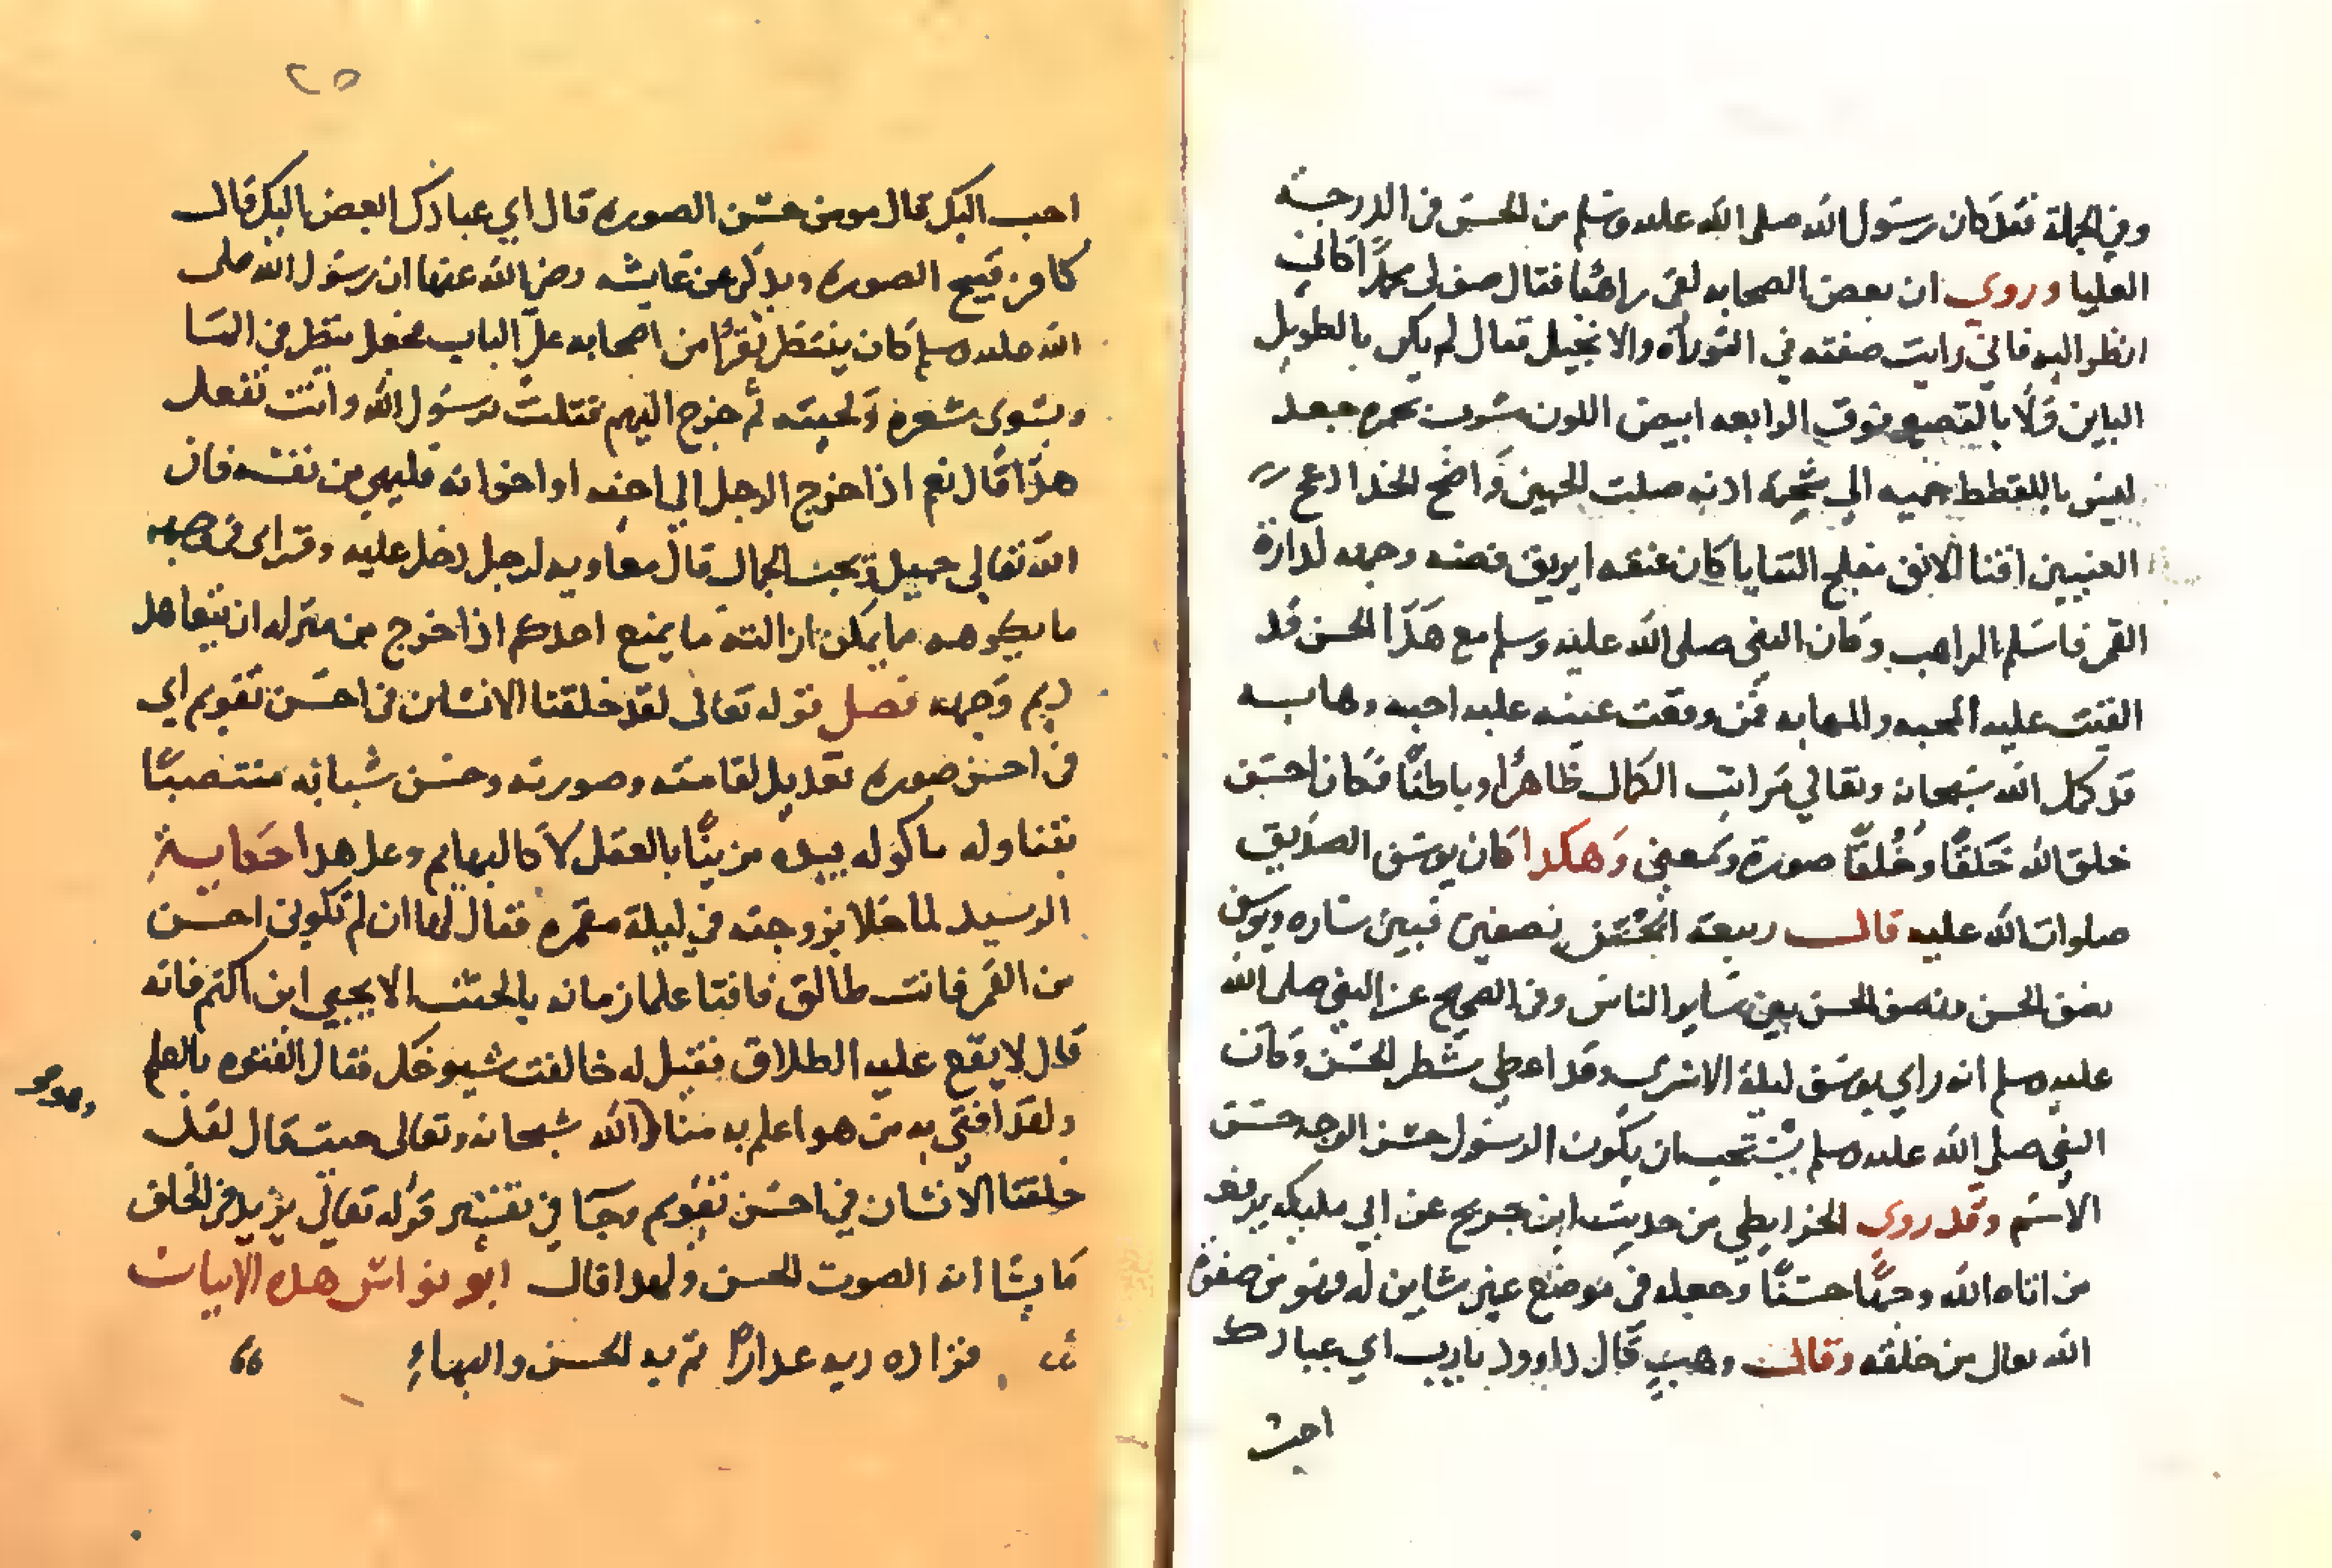 وفي الجملة فقد كان رسول الله صلى الله عليه وسلم من الحسن في الدرجة
العليا وروي ان بعض الصحابه لقى راهبا فقال صف لى محمدا كاني
انظر اليه فاني رايت صفته في التوراة والانجيل فقال لم يكن بالطويل
الباين ولا بالقصير فوق الربعه ابيض اللون مشوب بحمره جعد
ليس بالقطط جميه الي شحمة اذنه صلت الجبين واضح الخد ادعج
العينين اقنا الانف مفلج الثنايا كان عنقه ابريق فضه وجهه لدارة
القمر فاسلم الراهب وكان النبي صلى الله عليه وسلم مع هذا الحسن قد
القيت عليه المحبه والمهابه فمن وقعت عينه عليه احبه وهابه
قد كمل الله سبحانه وتعالي مراتب الكمال ظاهرا وباطنا فكان احسن
خلق الله خَلقًا وخُلقًا صورة ومعنى وهكدا كان يوسف الصديق
صلوات الله عليه قالـــ ربيعة الحسن نصفين فبين ساره ويوسف
نصف الحسن ونصف الحسن بين ساير الناس وفي الصحيح عن النبي صلى الله
عليه وسلم انه راي يوسف ليلة الاسرى وقد اعطي شطر الحسن وكان
النبي صلي الله عليه وسلم يستحب ان يكون الرسول حسن الوجه حسن
الاسم وقد روى الخرايطي من حديث ابن جريج عن ابي مليكه يرفعه
من اتاه الله وجها حسنًا وجعله في موضع غير شاين له فهو من صفوة
الله تعالى من خلقه وقالـــ وهب قال داوود يارب اي عبادك
احبـ
٢٥
احب اليك قال مومن حسن الصوره قال اي عبادك ابعض اليك قالـــ
كافر قبيح الصوره ويذكر عن عايشه رضي الله عنها ان رسول الله صلى
الله عليه وسلم كان ينتظر نفرًا من اصحابه على الباب فجعل ينظر في المـا
ويسوى شعره ولحيته ثم خرج اليهم فقلت يرسول الله وانت تفعل
هذا قال نعم اذا خرج الرجل الي احيه او اخوانه فليهي من نفسه فان
الله تعالى جميل يحب الجمال قال معاويه لرجل دخل عليه وقد راى في وجهه
ما يكرهه مما يمكن ازالته ما يمنع احدكم اذا خرج من منزله ان يتعاهد
اديم وجهه فصل قوله تعالى لقد خلقنا الانسان في احسن تقويم اي
في احسن صوره تعديل لقامته وصورته وحسن شبابه منتصبًا
يتناوله ماكوله بيده مزينًا بالعقل لا كالبهايم وعلى هدا حكاية
الرسيد لما خلا بزوجته في ليلة مقمره فقال لها ان لم تكوني احسن
من القمر فانت طالق فافتا علما زمانه بالحنث الا يحيى ابن اكثم فانه
قال لا يقع عليه الطلاق فقيل له خالفت شيوخك فقال الفتوه بالعلم
ولقد افتى به من هو اعلم به منا الله سبحانه وتعالى حيث قال لقد
وهوهو
خلقنا الانسان في احسن تقويم وجا في تفسير قوله تعالي يزيد في الخلق
ما يشا انه الصوت الحسن ولهدا قالـــ ابو نواس هده الابيات
فزاده ربه عدارًا تم به الحسن والبهاءِ